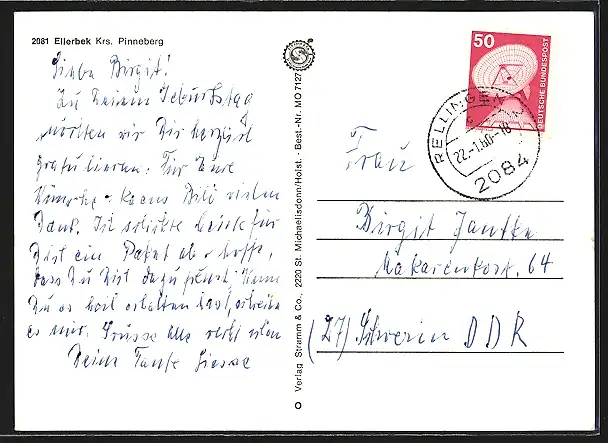 2081 Ellerbek Krs. Pinneberg
Liebe Birgit!
Zu Deinem Geburtstag
möchten wir Dir herzlich
gratulieren. Für Eure
vielen
Dank. Ich schickte heute für
Dich ein Paket ab u. hoffe,
dass Du Dich dazu freust. Wenn
Du es heil erhalten hast, schreibe
es mir. Grüsse alle recht schön
Deine Tante
Verlag Stramm & Co., 2220 St. Michaelisdonn/Holst. Best.-Nr. MO 7127
50
DEUTSCHE BUNDESPOST
RELLINGEN
22.-1.80-18
2084
Frau
Birgit Janften
Makarenkostr. 64
(27) Schwerin DDR